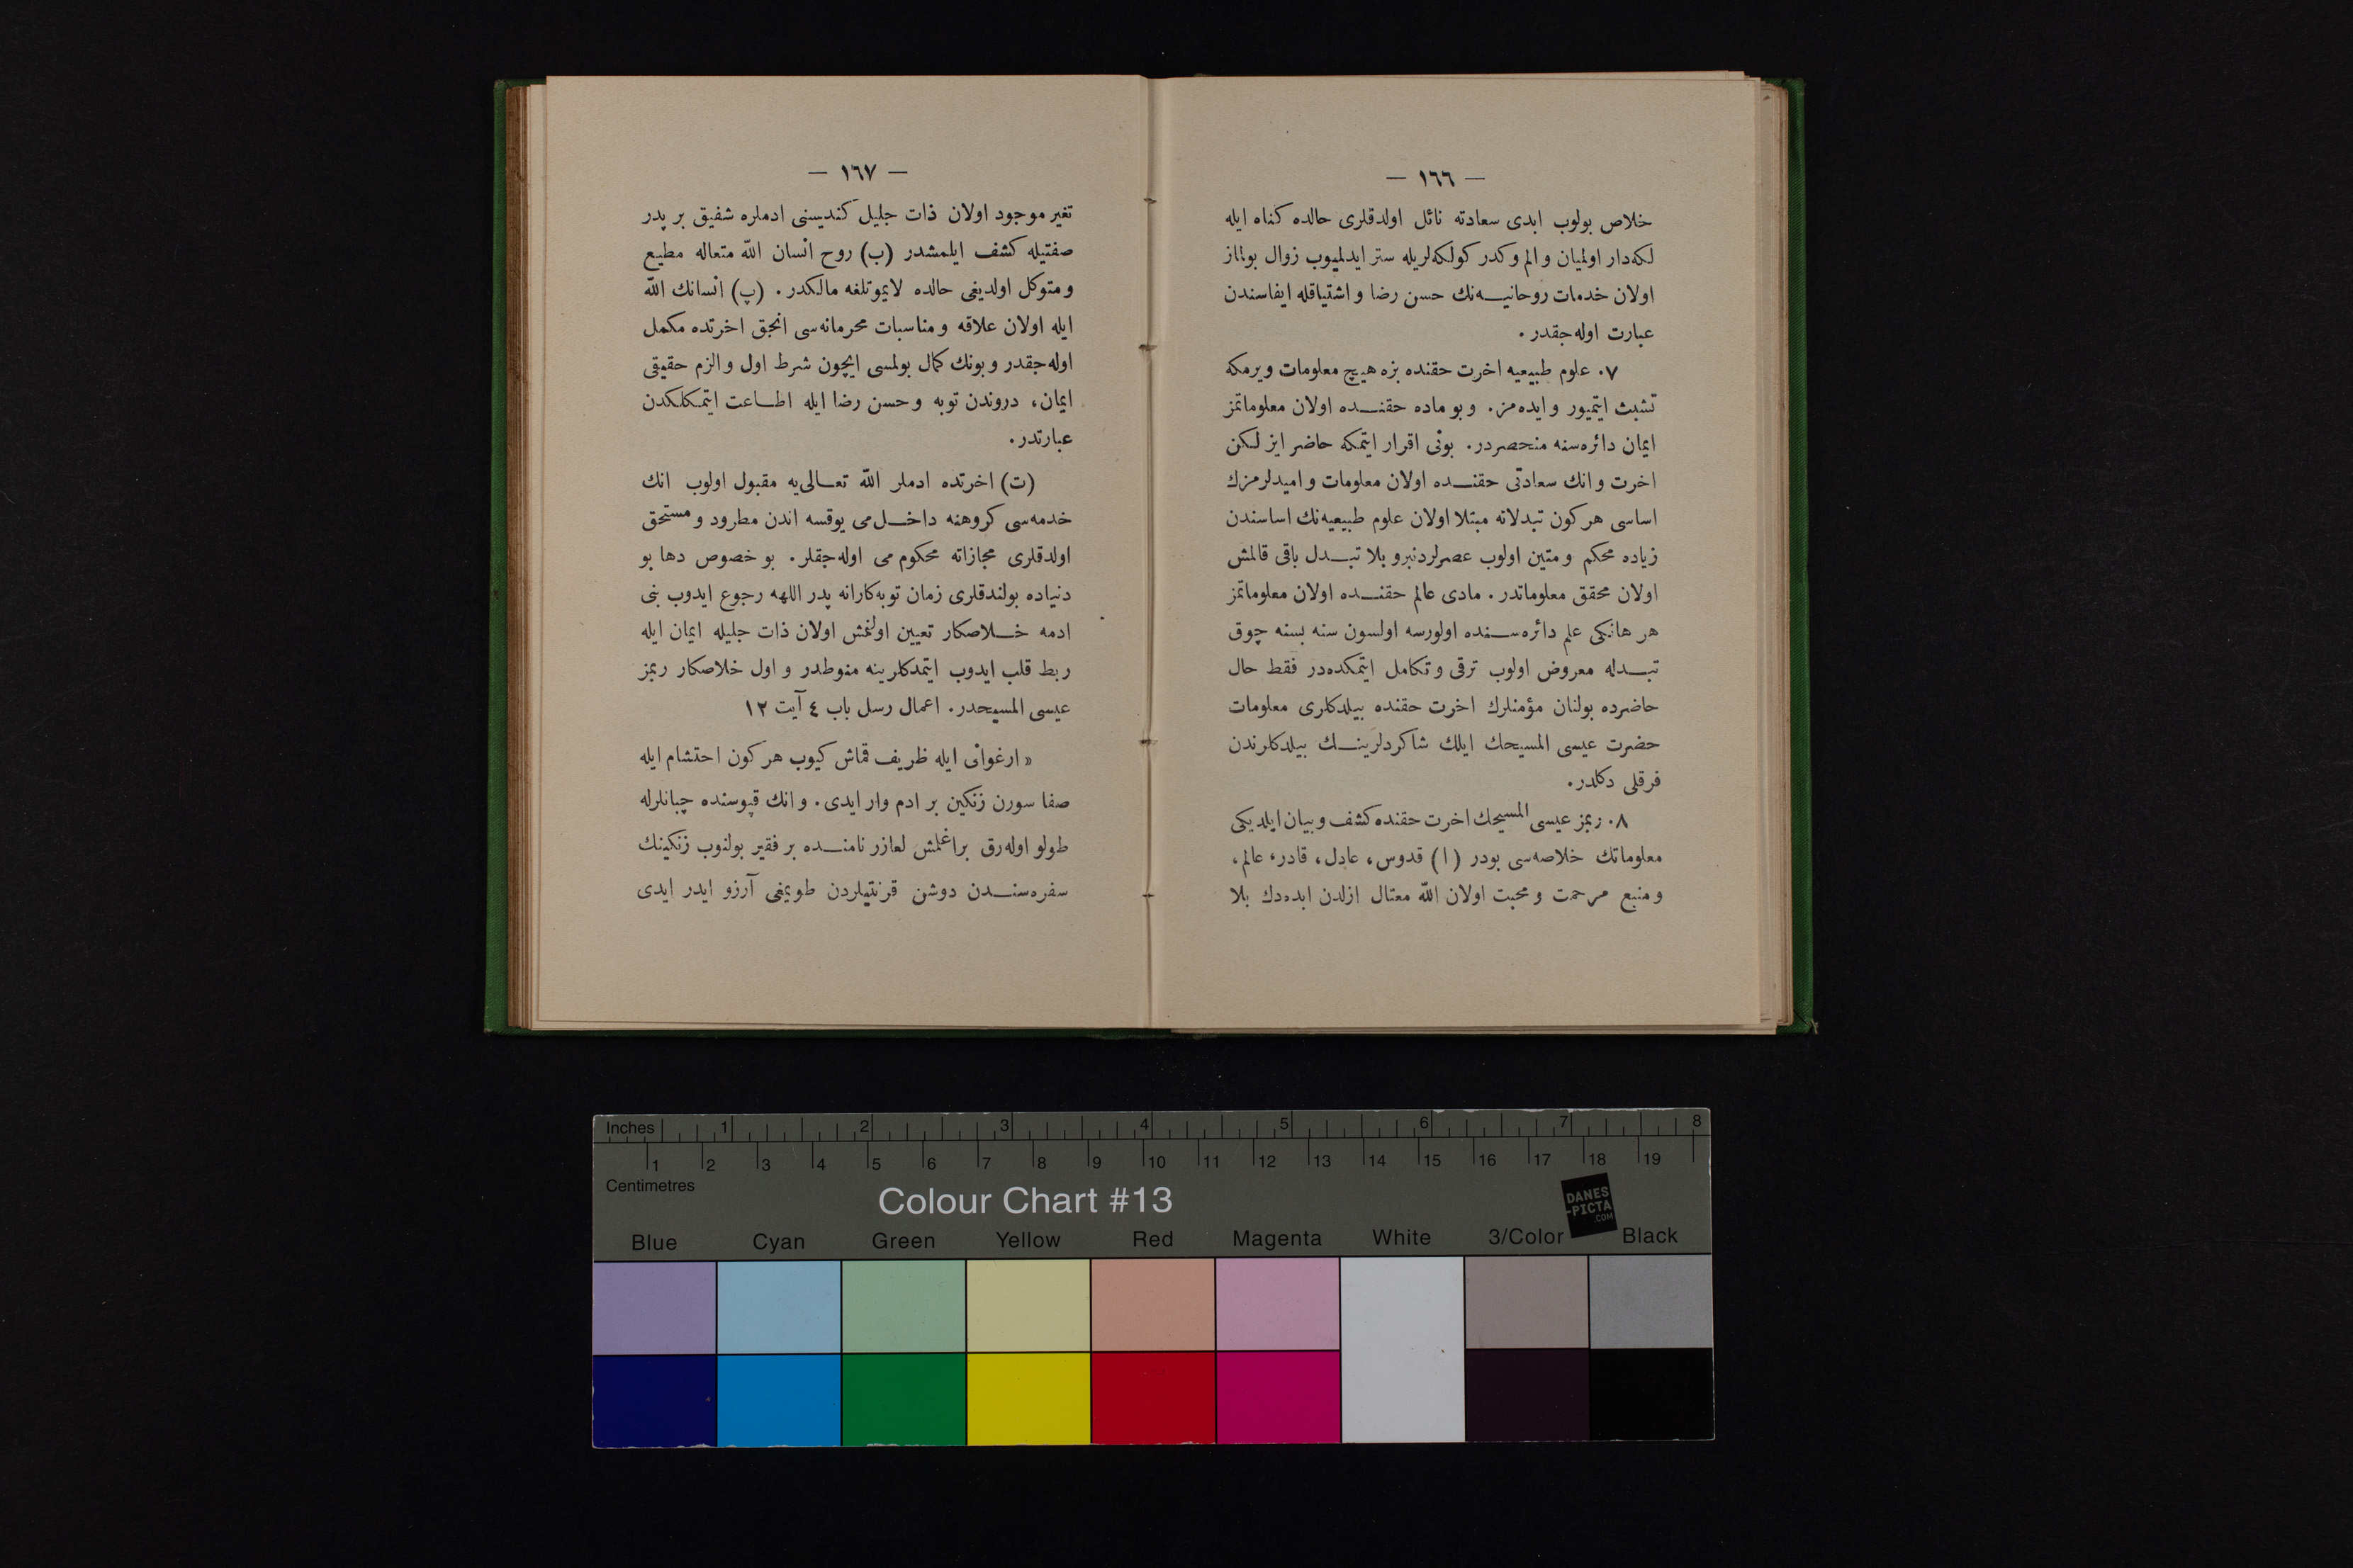 — ١٦٦ —
خلاص بولوب ابدی سعادته نائل اولدقلری حالده كناه ایله
لكه‌دار اولمیان و الم و كدر كولكه‌لریله ستر ایدلمیوب زوال بولماز
اولان خدمات روحانیـه‌نك حسن رضا و اشتیاقله ایفاسندن
عبارت اوله‌جقدر .
٧. علوم طبیعیه اخرت حقنده بزه هیچ معلومات ویرمكه
تشبث ایتمیور و ایده‌مز. و بو ماده حقنـده اولان معلوماتمز
ایمان دائره‌سنه منحصردر. بونی اقرار ایتمكه حاضر ایز لكن
اخرت و انك سعادتی حقنـده اولان معلومات و امیدلرمزك
اساسی هركون تبدلاته مبتلا اولان علوم طبیعیه‌نك اساسندن
زیاده محكم و متین اولوب عصرلردنبرو بلا تبـدل باقی قالمش
اولان محقق معلوماتدر. مادی عالم حقنـده اولان معلوماتمز
هر هانكی علم دائره‌سـنده اولورسه اولسون سنه بسنه چوق
تبـدله معروض اولوب ترقی و تكامل ایتمكده‌در فقط حال
حاضرده بولنان مؤمنلرك اخرت حقنده بیلدكلری معلومات
حضرت عیسی المسیحك ایلك شاكردلرینـك بیلدكلرندن
فرقلی دكلدر.
٨. ربمز عیسی المسیحك اخرت حقنده كشف و بیان ایلدیكی
معلوماتك خلاصه‌سی بودر (ا) قدوس، عادل، قادر، عالم،
و منبع مرحمت و محبت اولان اللّه معتال ازلدن ابده‌دك بلا
— ١٦٧ —
تغیر موجود اولان ذات جلیل كندیسنی ادملره شفیق بر پدر
صفتیله كشف ایلمشدر (ب) روح انسان اللّه متعاله مطیع
و متوكل اولدیغی حالده لایموتلغه مالكدر. (پ) انسانك اللّه
ایله اولان علاقه و مناسبات محرمانه‌سی انجق اخرتده مكمل
اوله‌جقدر و بونك كمال بولمسی ایچون شرط اول و الزم حقیقی
ایمان، دروندن توبه و حسن رضا ایله اطـاعت ایتمكلكدن
عبارتدر.
(ت) اخرتده ادملر اللّه تعـالی‌یه مقبول اولوب انك
خدمه‌سی كروهنه داخـل‌می یوقسه اندن مطرود و مستحق
اولدقلری مجازاته محكوم می اوله‌جقلر. بو خصوص دها بو
دنیاده بولندقلری زمان توبه‌كارانه پدر اللهه رجوع ایدوب بنی
ادمه خـلاصكار تعیین اولنمش اولان ذات جلیله ایمان ایله
ربط قلب ایدوب ایتمدكلرینه منوطدر و اول خلاصكار ربمز
عیسی المسیحدر. اعمال رسل باب ٤ آیت ١٢
« ارغوانی ایله ظریف قماش كیوب هركون احتشام ایله
صفا سورن زنكین بر ادم وار ایدی. و انك قپوسنده چبانلرله
طولو اوله‌رق براغلمش لعازر نامنـده بر فقیر بولنوب زنكینك
سفره‌سنـدن دوشن قرنتیلردن طویمغی آرزو ایدر ایدی
Inches 1 2 3 4 5 6 7 8
1 2 3 4 5 6 7 8 9 10 11 12 13 14 15 16 17 18 19
Centimetres
Colour Chart #13
DANES
-PICTA
.COM
Blue Cyan Green Yellow Red Magenta White 3/Color Black